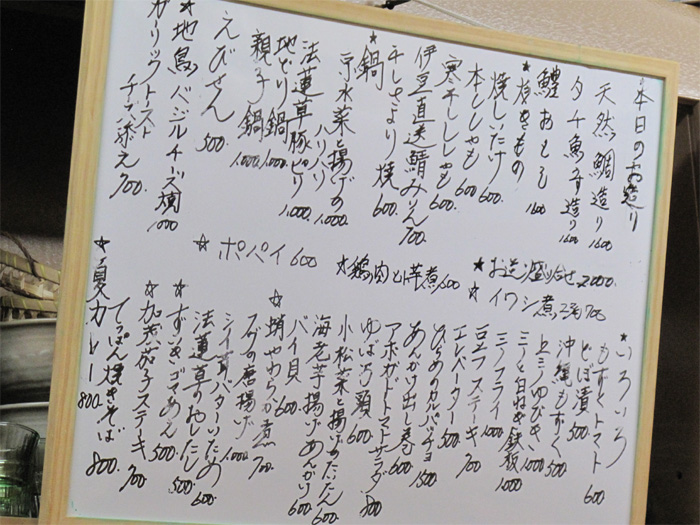 本日のお造り
天然鯛造り 1600
タチ魚造り 1600
鯉あらい 1600
★焼きもの
焼しいたけ 600
本ししゃも 600
寒干ししゃも 600
伊豆直送鯖みりん 700
干しさより焼 600
★鍋
京水菜と揚げの
ハリハリ 1,000
法蓮草豚ピリ 1,000
地どり鍋 1,000
親子鍋 1,000
えびせん 500
★地鳥バジルチーズ焼 1000
ガリックトースト
チーズ添え 700
★お造り盛り合せ 2000
★イワシ煮 700
★鶏肉と芋煮 600
★ポパイ 600
★いろいろ
もずくトマト 600
どぼ漬 500
沖縄もずく 500
上ミノゆびき 1000
ミノと白ねぎ鉄板 1000
ミノフライ 1000
豆フステーキ 700
エレベーター 500
ひらめのカルパッチョ 1500
あんかけ出し巻 600
アボガドトマトサラダ 800
ゆば万頭 600
小松菜と揚げのたいたん 600
海老芋揚げあんかけ 600
バイ貝 600
★蛸やわらか煮 700
フグの唐揚げ 1,000
シイ茸バターいため 600
法蓮草のおしたし 500
★ずいきゴマあえ 500
★加茂茄子ステーキ 700
てっぱん焼きそば 800
★夏カレー 800